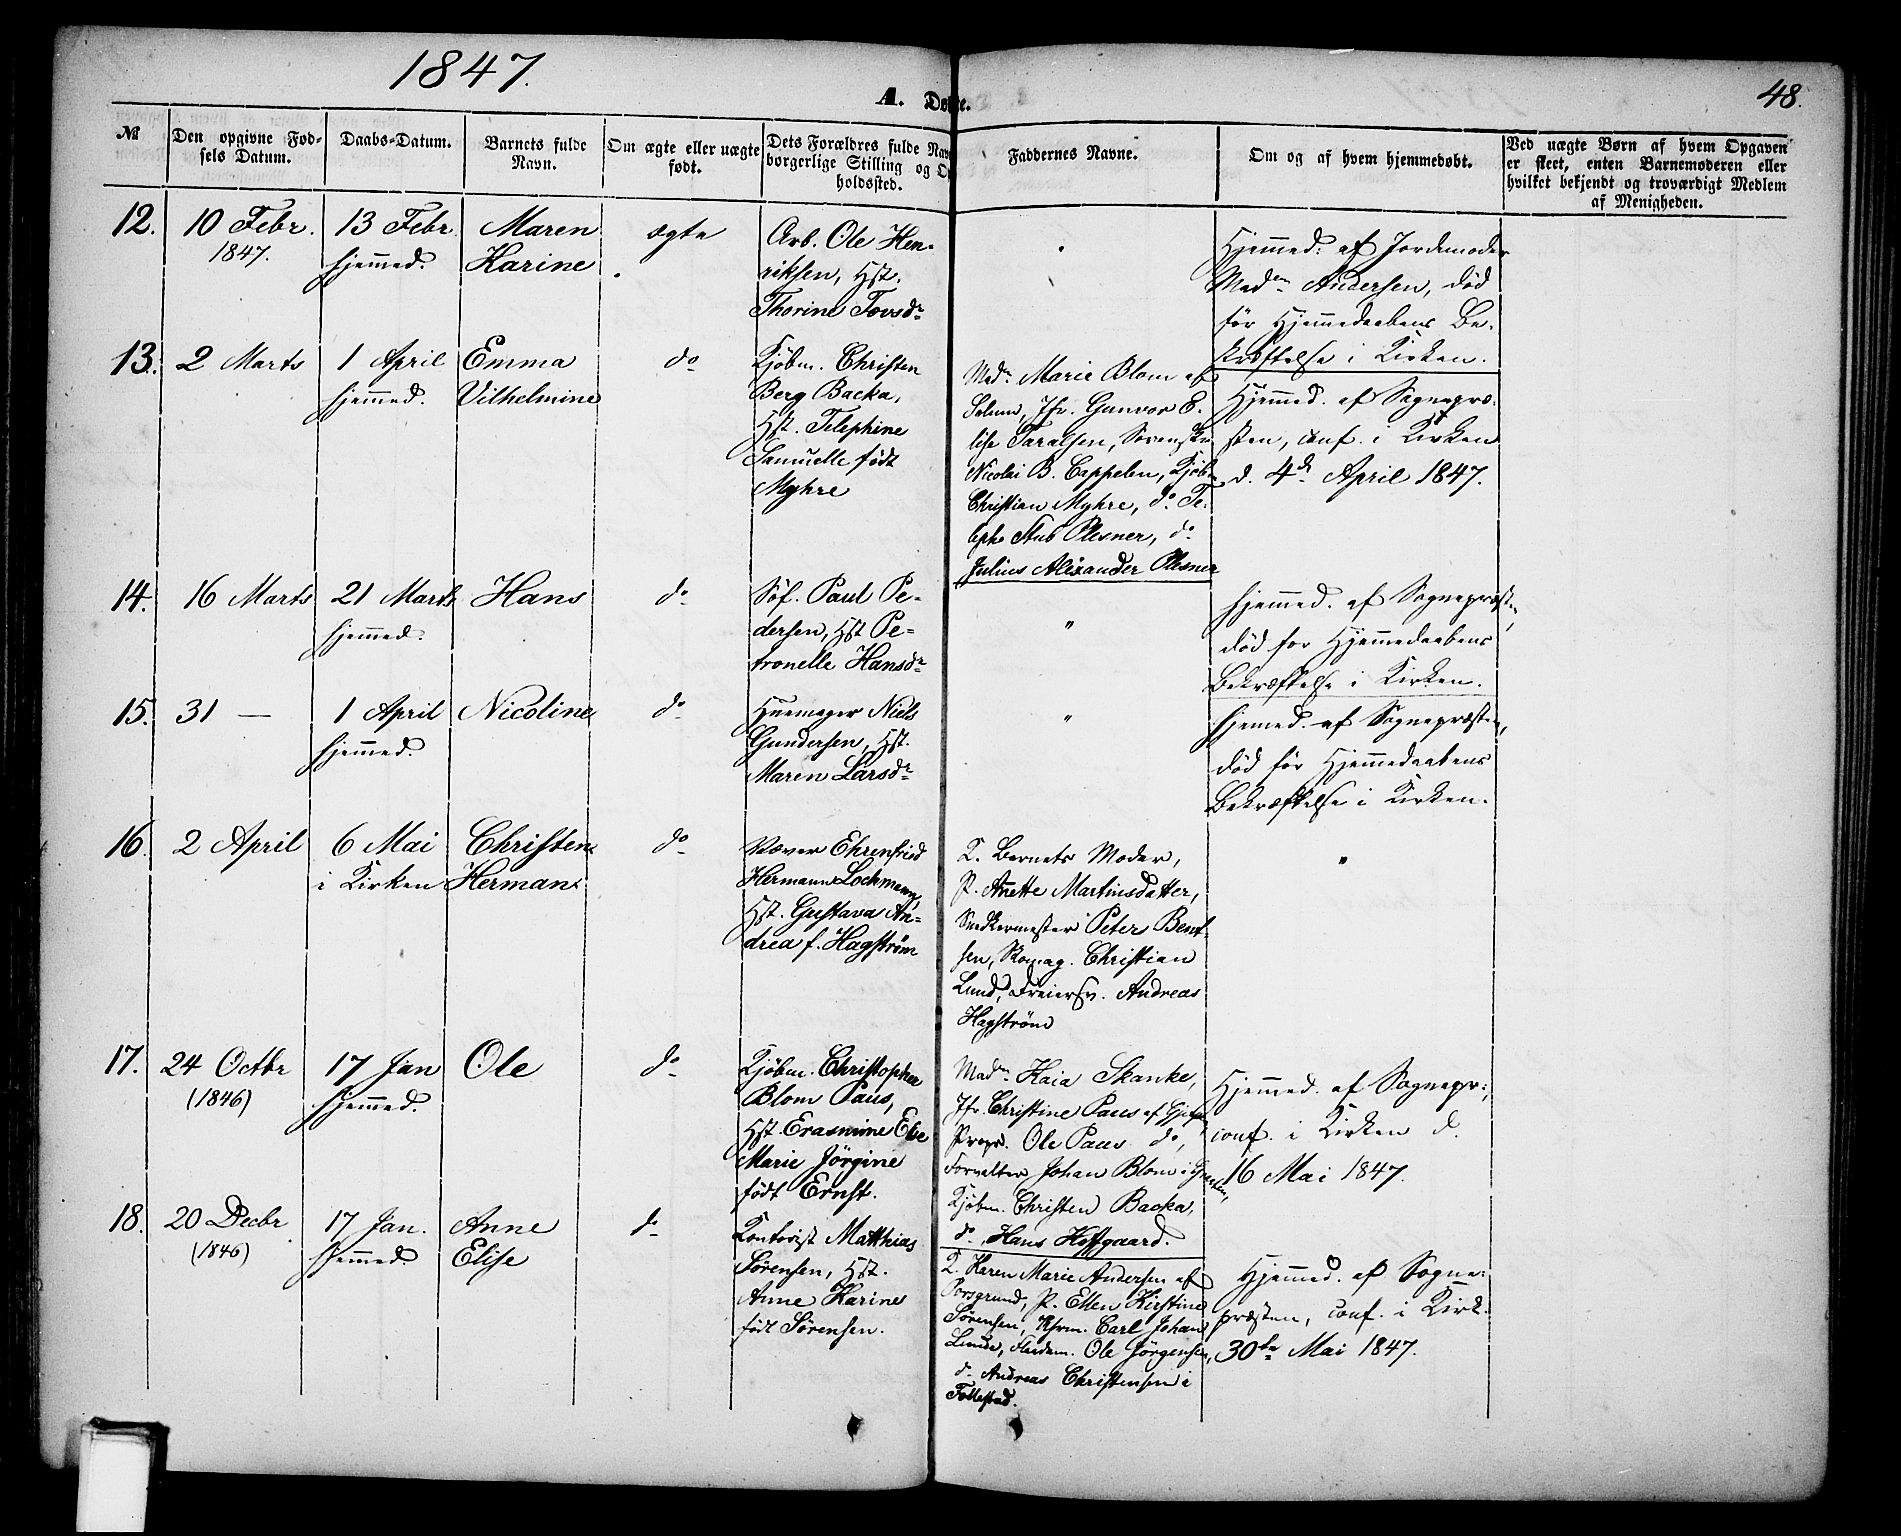 1847.
48.
A. Døbte.
№
Den opgivne Fød-
sels Datum.
Daabs-Datum.
Barnets fulde
Navn.
Om ægte eller uægte
født.
Dets Forældres fulde Navn
borgerlige Stilling og O
holdssted.
Faddernes Navne.
Om og af hvem hjemmedøbt.
Ved uægte Børn af hvem Opgaven
er skeet, enten Barnemoderen eller
hvilket bekjendt og troværdigt Medlem
af Menigheden.
12.
10 Febr.
1847.
13 Febr.
hjemmed.
Maren
Karine
ægte
Arb. Ole Hen-
riksen, Hst.
Thorine Tovsdr
Hjemmed. af Jordemoder
Madm Andersen, død
før Hjemmedaabens Be-
kræftelse i Kirken.
13.
2 Marts
1 April
hjemmed.
Emma
Vilhelmine
do
Kjøbm. Christen
Berg Backa,
Hst. Telephine
Samuelle født
Myhre
Madm Marie Blom af
Solum, Jfr. Gunvor E-
lise Taralsen, Sorenskr.
Nicolai B. Cappelen, Kjøbm
Christian Myhre, do Te-
leph Stub Plesner, do
Julius Alexander Plesner
Hjemmed. af Sognepræ-
sten, conf. i Kirken
d. 4de April 1847.
14.
16 Marts
21 Marts
hjemmed.
Hans
do
Søf. Paul Pe-
dersen, Hst Pe-
tronelle Hansdr
"
Hjemmed. af Sognepræsten,
død før Hjemmedaabens
Bekræftelse i Kirken.
15.
31 —
1 April
hjemmed.
Nicoline
do
Huusmager Niels
Gundersen, Hst.
Maren Larsdr
"
Hjemmed. af Sognepræsten,
død før Hjemmedaabens
Bekræftelse i Kirken.
16.
2 April
6 Mai
i Kirken
Christen
Herman
do
Væver Ehrenfried
Hermann Lochmann,
Hst. Gustava An-
drea f. Hagström
K. Barnets Moder,
P. Anette Martinsdatter,
Snedkermester Peters Bent-
sen, Skomag. Christian
Lund, Dreiersv. Andreas
Hagström
"
17.
24 Octbr
(1846)
17 Jan
hjemmed.
Ole
do
Kjøbm. Christopher
Blom Paus,
Hst. Erasmine Else
Marie Jörgine
født Ernst.
Madm Kaia Skanke,
Jfr. Christine Paus af
Propr. Ole Paus do,
Forvalter Johan Blom i
Kjøbm. Christen Backa,
do, Hans Hoffgaard.
Hjemmed. af Sognepr.,
conf. i Kirken d.
16 Mai 1847.
18.
20 Decbr
(1846)
17 Jan.
hjemmed.
Anne
Elise
do
Kontorist Matthias
Sørensen, Hst.
Anne Karine
født Sørensen.
K. Karen Marie Andersen af
Porsgrund, P. Ellen Kirstine
Sørensen, Carl Johan
Lunde, Ole Jörgensen,
do Andreas Christensen i
Follestad.
Hjemmed. af Sogne-
præsten, conf. i Kirk.
30te Mai 1847.